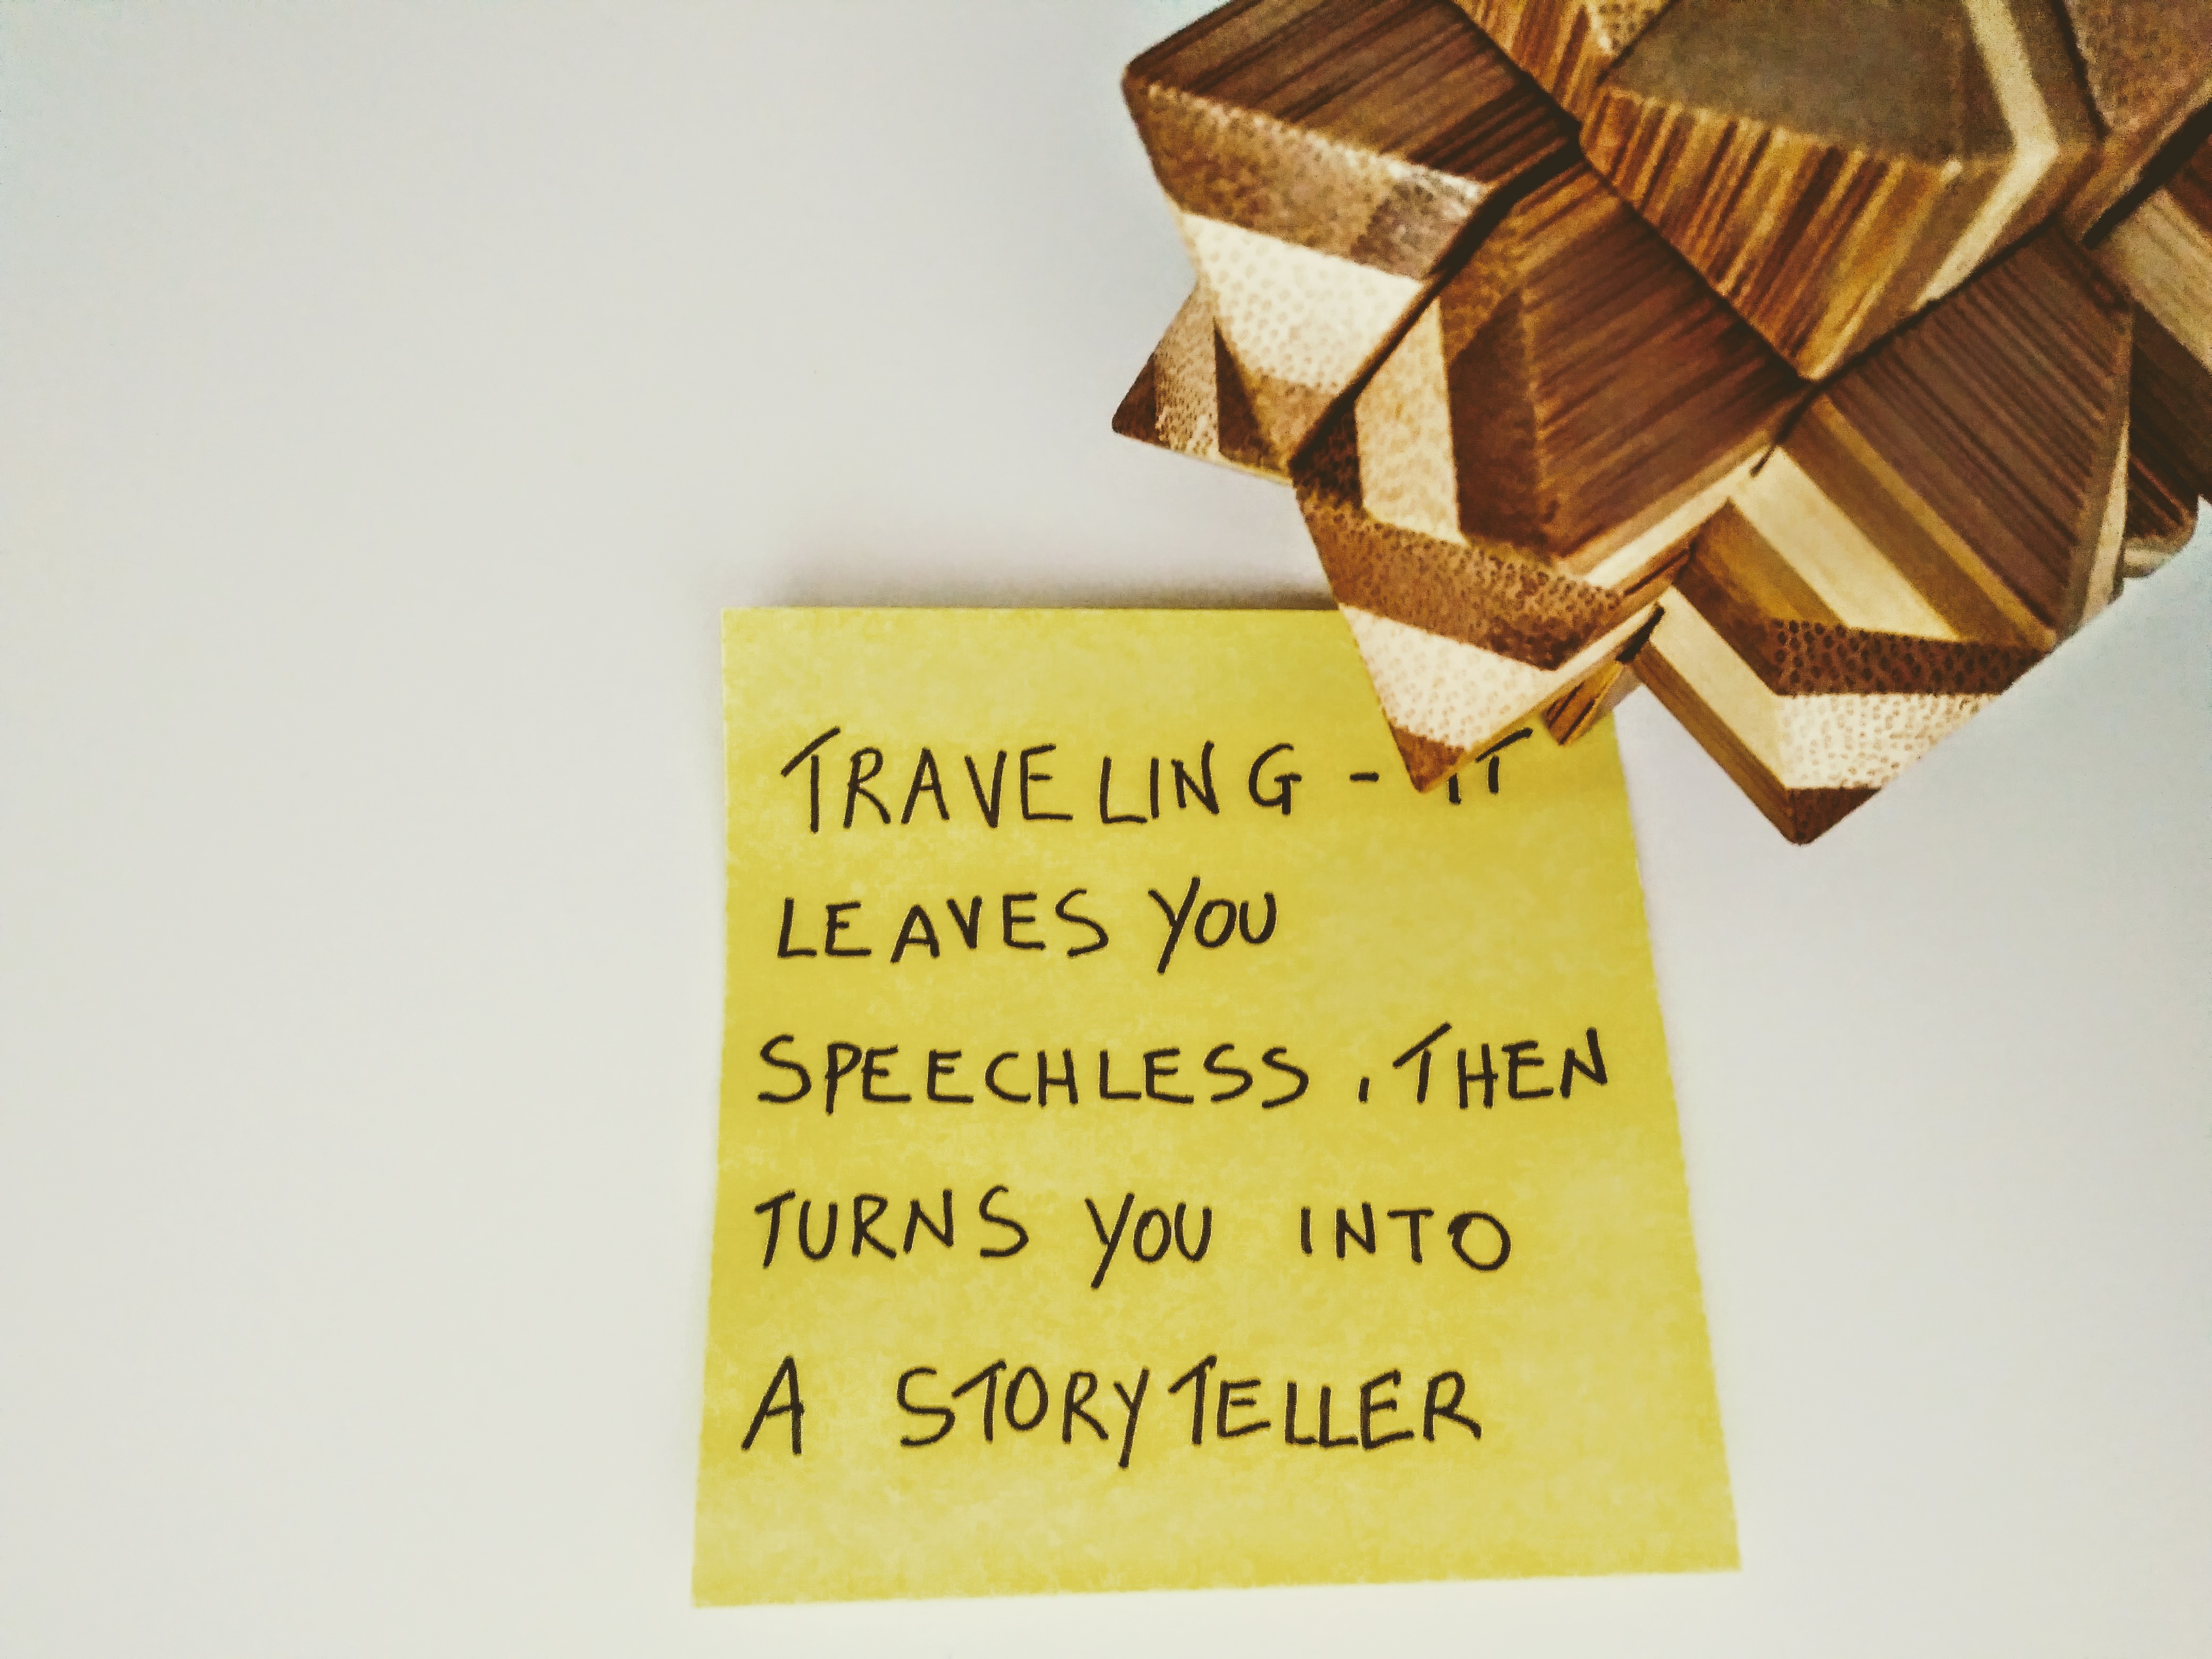 TRAVELING - IT
LEAVES YOU
SPEECHLESS , THEN
TURNS YOU INTO
A STORYTELLER